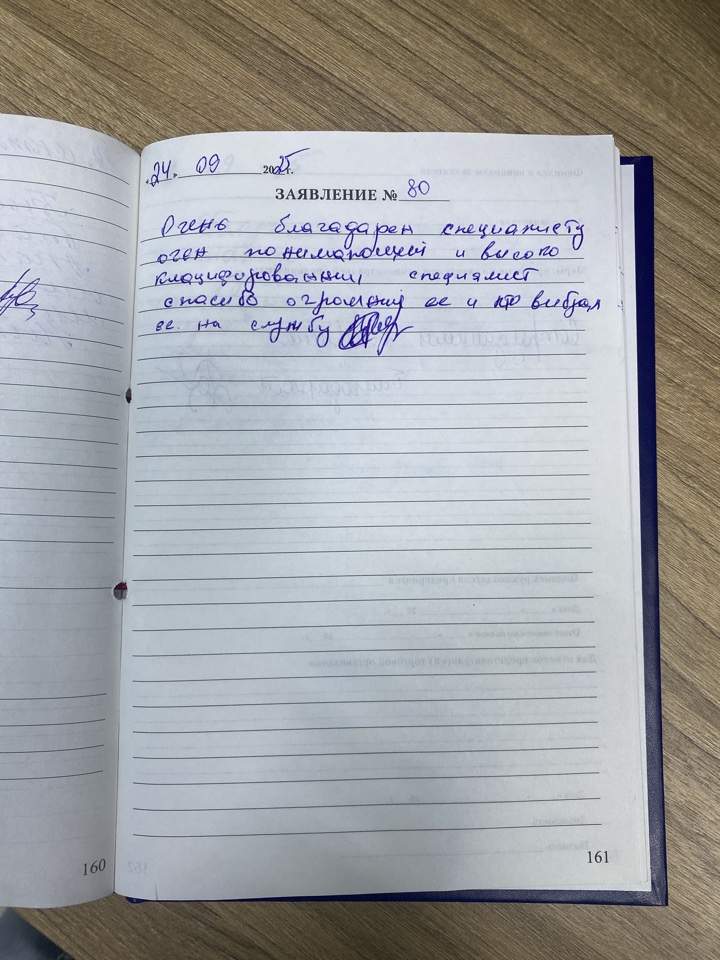 «24» 09 2025 г.
ЗАЯВЛЕНИЕ № 80
Очень благадарен специалисту
очен понимающей и высоко
клацифированныи специалист
спасибо огромния ее и кто выбрал
ее на службу
160
161